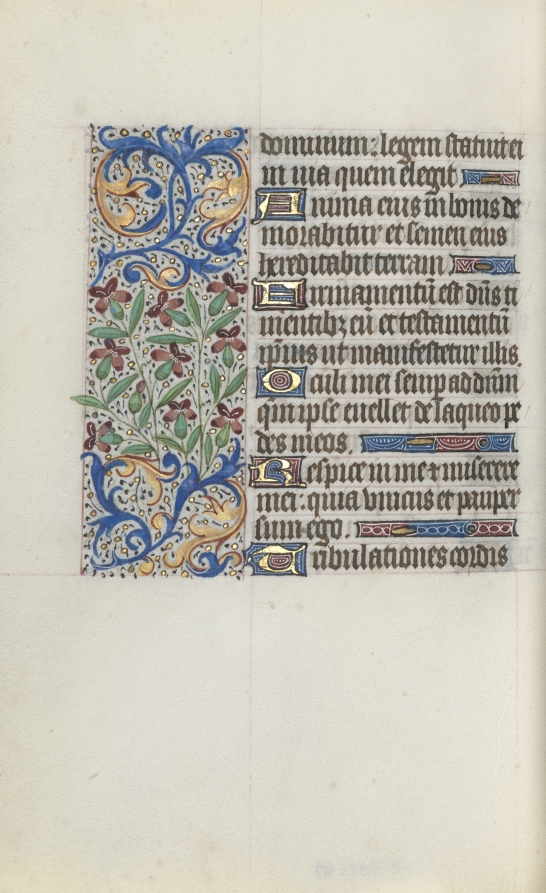 dominum: legem statuit ei
in via quem elegit
Anima eius in bonis de
morabitur et semen eius
hereditabit terram
Firmamentū est dn̄s ti
mentibȝ eū et testamentū
ipsius ut manifestetur illis.
Oculi mei semp ad dn̄m
qm̄ ipse evellet de laqueo pe
des meos.
Respice in me ⁊ miserere
mei. quia unicus et pauper
sum ego.
Tribulationes cordis